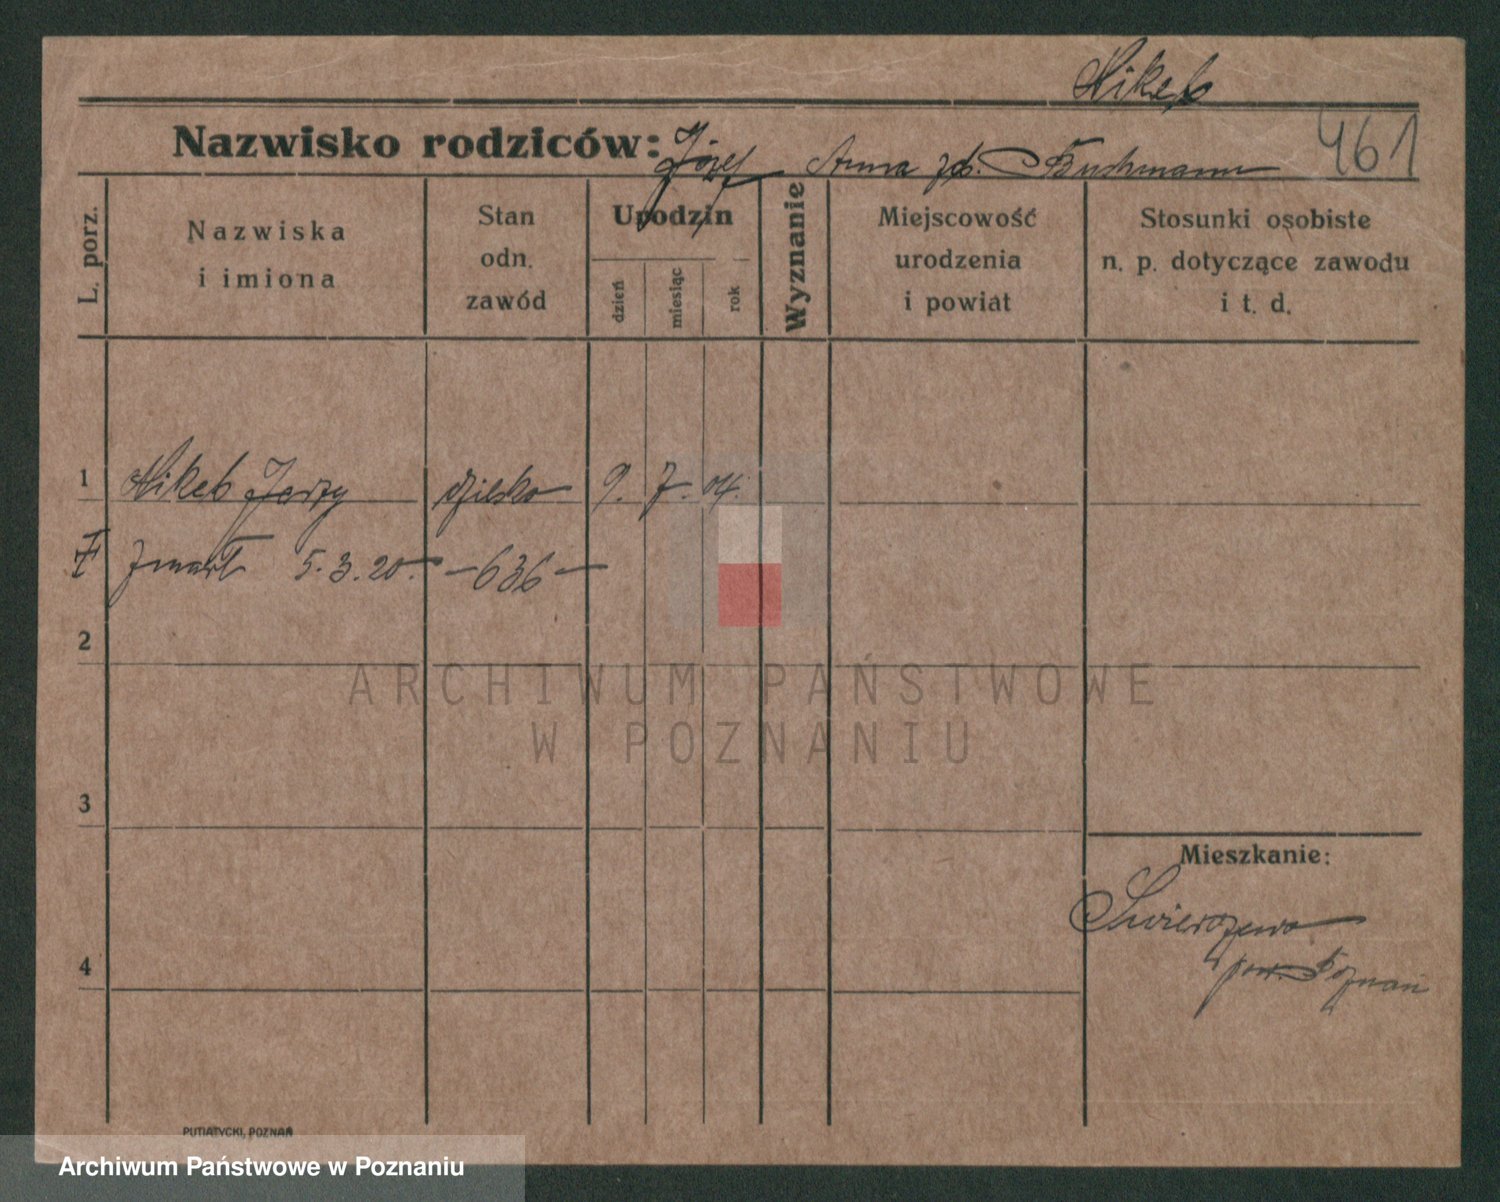 Nikeb
461
Nazwisko rodziców: Józef Anna zd. Buschmann
L. porz.
Nazwiska
i imiona
Stan
odn.
zawód
Urodzin
dzień
miesiąc
rok
Wyznanie
Miejscowość
urodzenia
i powiat
Stosunki osobiste
n. p. dotyczące zawodu
i t. d.
1 Nikeb Jerzy dziecko 9. 7. 04.
zmarł 5.3.20. - 636 -
2
ARCHIWUM PAŃSTWOWE
W POZNANIU
3
Mieszkanie:
Świerczewo
pow. Poznań
4
PUTIATYCKI, POZNAŃ
Archiwum Państwowe w Poznaniu